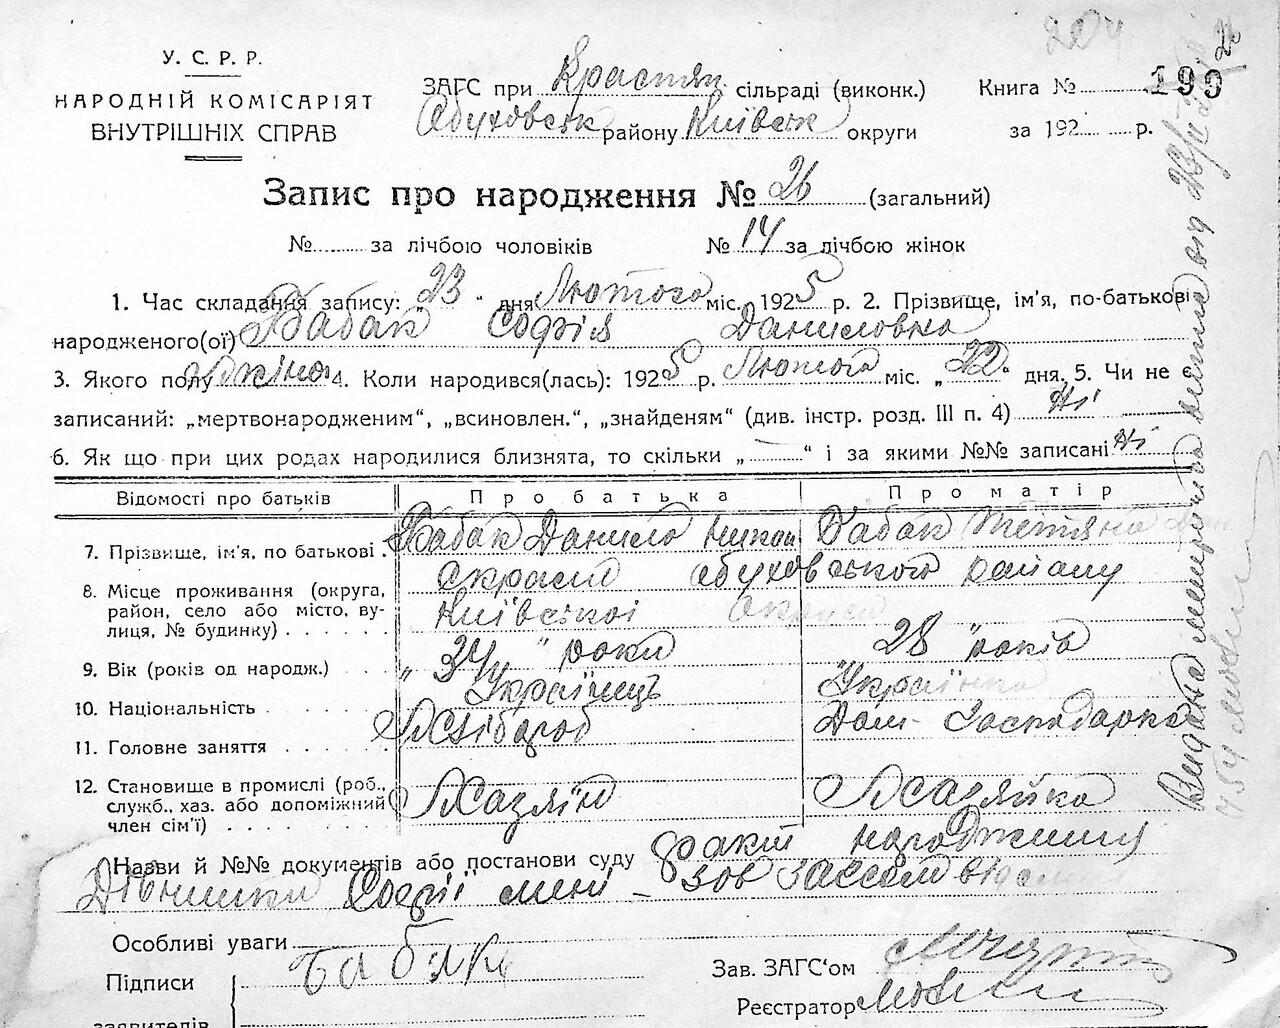 У. С. Р. Р.
НАРОДНІЙ КОМІСАРІЯТ
ВНУТРІШНІХ СПРАВ
ЗАГС при сільраді (виконк.)
Обуховськ району Київськ округи
Книга № 199
за 192 р.
Запис про народження № 26 (загальний)
№ за лічбою чоловіків № 14 за лічбою жінок
1. Час складання запису: „23“ дня Лютого міс. 1925 р. 2. Прізвище, ім'я, по-батькові
народженого(ої) Бабак Софія Даниловна
3. Якого полу жіноч 4. Коли народився(лась): 1925 р. Лютого міс. „22“ дня. 5. Чи не є
записаний: „мертвонародженим“, „всиновлен.“, „знайденям“ (див. інстр. розд. III п. 4) Ні
6. Як що при цих родах народилися близнята, то скільки „ “ і за якими №№ записані Ні
Відомості про батьків Про батька Про матір
7. Прізвище, ім'я, по батькові. Бабак Данило Бабак Тетяна
8. Місце проживання (округа, Обуховського району
район, село або місто, ву- Київської округи
лиця, № будинку)
9. Вік (років од народж.) „34“ роки 28 „років
10. Національність Українець Українка
11. Головне заняття Хлібороб Дом. Господарка
12. Становище в промислі (роб., Хазяїн Хазяйка
служб., хаз. або допоміжний
член сім'ї)
Назви й №№ документів або постанови суду факт народження
Дівчинки Софії мені
Особливі уваги
Підписи Бабак
заявителів
Зав. ЗАГС'ом
Реєстратор